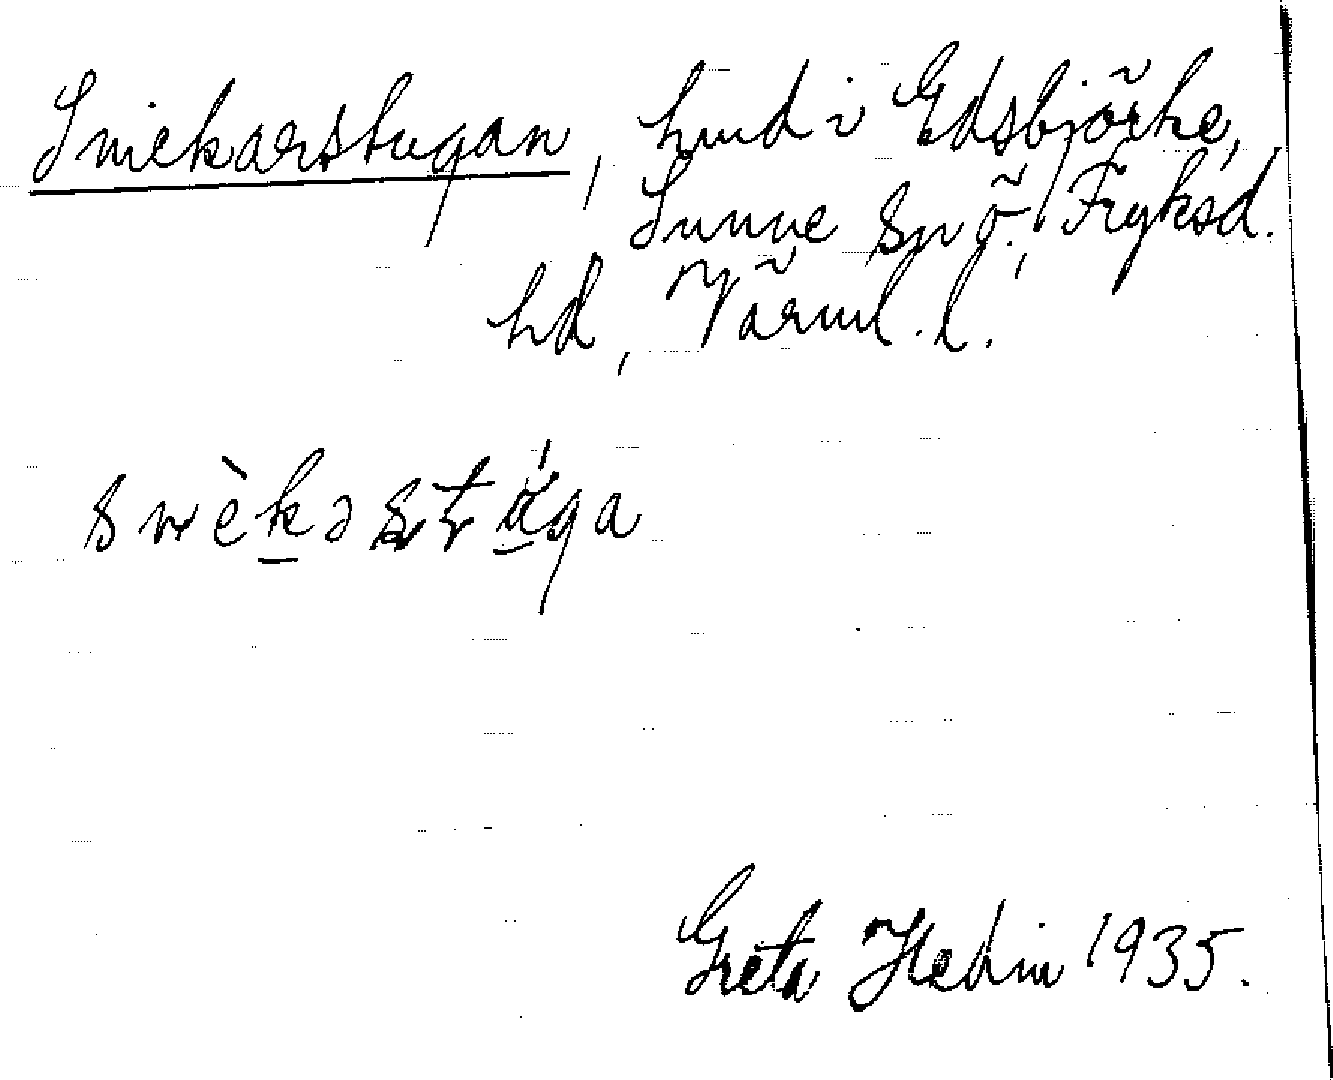 Snickarstugan, hmd i Edsbjörke,
Sunne sn ö., Fryksd.
hd, Värml. l.
snèkastúga
Greta Hedin 1935.